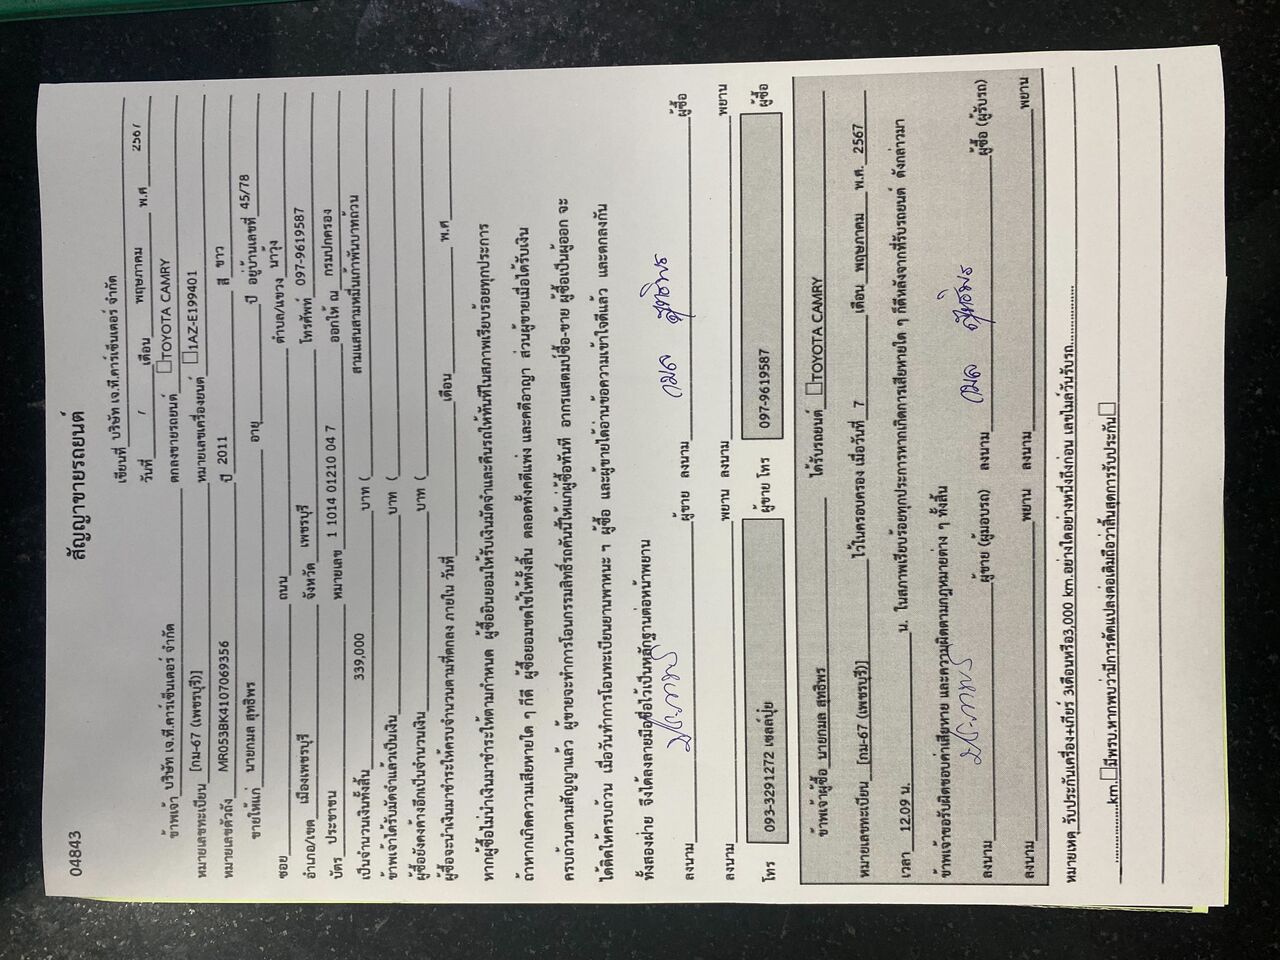 04843
สัญญาขายรถยนต์
เขียนที่ บริษัท เจ.ที.คาร์เซ็นเตอร์ จำกัด
วันที่ / เดือน พฤษภาคม พ.ศ 2567
ข้าพเจ้า บริษัท เจ.ที.คาร์เซ็นเตอร์ จำกัด ตกลงขายรถยนต์ ☐TOYOTA CAMRY
หมายเลขทะเบียน [กม-67 (เพชรบุรี)] หมายเลขเครื่องยนต์ ☐1AZ-E199401
หมายเลขตัวถัง MR053BK4107069356 ปี 2011 สี ขาว
ขายให้แก่ นายกมล สุทธิพร อายุ ปี อยู่บ้านเลขที่ 45/78
ซอย ถนน ตำบล/แขวง นาวุ้ง
อำเภอ/เขต เมืองเพชรบุรี จังหวัด เพชรบุรี โทรศัพท์ 097-9619587
บัตร ประชาชน หมายเลข 1 1014 01210 04 7 ออกให้ ณ กรมปกครอง
เป็นจำนวนเงินทั้งสิ้น 339,000 บาท ( สามแสนสามหมื่นเก้าพันบาทถ้วน
ข้าพเจ้าได้รับมัดจำแล้วเป็นเงิน บาท (
ผู้ซื้อยังคงค้างอีกเป็นจำนวนเงิน บาท (
ผู้ซื้อจะนำเงินมาชำระให้ครบจำนวนตามที่ตกลง ภายใน วันที่ เดือน พ.ศ
หากผู้ซื้อไม่นำเงินมาชำระให้ตามกำหนด ผู้ซื้อยินยอมให้ริบเงินมัดจำและคืนรถให้ทันทีในสภาพเรียบร้อยทุกประการ
ถ้าหากเกิดความเสียหายใด ๆ ก็ดี ผู้ซื้อยอมชดใช้ให้ทั้งสิ้น ตลอดทั้งคดีแพ่ง และคดีอาญา ส่วนผู้ขายเมื่อได้รับเงิน
ครบถ้วนตามสัญญาแล้ว ผู้ขายจะทำการโอนกรรมสิทธิ์รถคันนี้ให้แก่ผู้ซื้อทันที อากรแสตมป์ซื้อ-ขาย ผู้ซื้อเป็นผู้ออก จะ
ได้ติดให้ครบถ้วน เมื่อวันทำการโอนทะเบียนยานพาหนะ ฯ ผู้ซื้อ และผู้ขายได้อ่านข้อความเข้าใจดีแล้ว และตกลงกัน
ทั้งสองฝ่าย จึงได้ลงลายมือชื่อไว้เป็นหลักฐานต่อหน้าพยาน
ลงนาม ผู้ขาย ลงนาม กมล สุทธิพร ผู้ซื้อ
ลงนาม พยาน ลงนาม พยาน
โทร 093-3291272 เซลล์ปุ่ย ผู้ขาย โทร 097-9619587 ผู้ซื้อ
ข้าพเจ้าผู้ซื้อ นายกมล สุทธิพร ได้รับรถยนต์ ☐TOYOTA CAMRY
หมายเลขทะเบียน [กม-67 (เพชรบุรี)] ไว้ในครอบครอง เมื่อวันที่ 7 เดือน พฤษภาคม พ.ศ. 2567
เวลา 12.09 น. น. ในสภาพเรียบร้อยทุกประการหากเกิดการเสียหายใด ๆ ก็ดีหลังจากที่รับรถยนต์ ดังกล่าวมา
ข้าพเจ้าขอรับผิดชอบค่าเสียหาย และความผิดตามกฎหมายต่าง ๆ ทั้งสิ้น
ลงนาม ผู้ขาย (ผู้มอบรถ) ลงนาม กมล สุทธิพร ผู้ซื้อ (ผู้รับรถ)
ลงนาม พยาน ลงนาม พยาน
หมายเหตุ รับประกันเครื่อง+เกียร์ 3เดือนหรือ3,000 km.อย่างใดอย่างหนึ่งถึงก่อน เลขไมล์วันรับรถ..................
..................km.☐มีพรบ.หากพบว่ามีการดัดแปลงต่อเติมถือว่าสิ้นสุดการรับประกัน☐